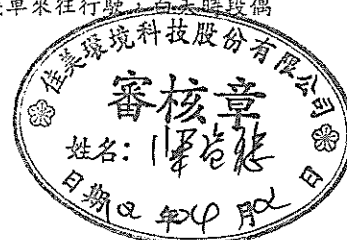 車來往行駛，白天時段偶
佳美環境科技股份有限公司
審核章
姓名：
日期 年 月 日